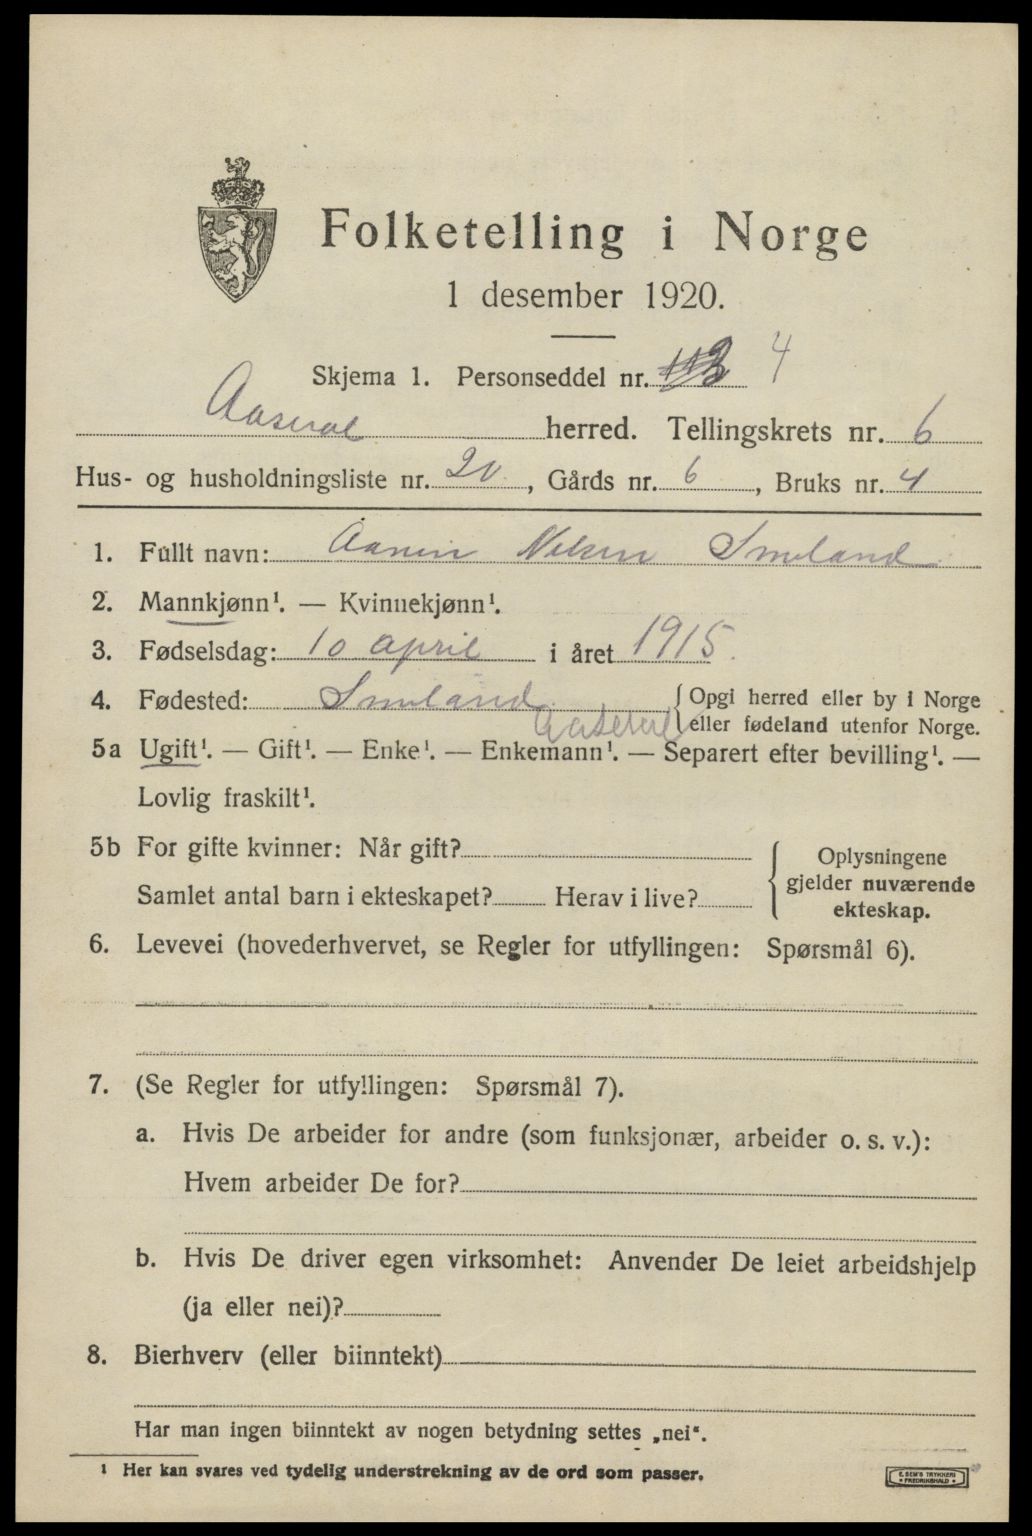 Folketelling i Norge
1 desember 1920.
Skjema 1. Personseddel nr. 4
Aaseral herred. Tellingskrets nr. 6
Hus- og husholdningsliste nr. 20, Gårds nr. 6, Bruks nr. 4
1. Fullt navn: Aanen Nilsen Smeland
2. Mannkjønn¹. — Kvinnekjønn¹.
3. Fødselsdag: 10 april i året 1915.
4. Fødested: Smeland {Opgi herred eller by i Norge
Aaseral eller fødeland utenfor Norge.
5a Ugift¹. — Gift¹. — Enke¹. — Enkemann¹. — Separert efter bevilling¹. —
Lovlig fraskilt¹.
5b For gifte kvinner: Når gift?
Samlet antal barn i ekteskapet? Herav i live?
{ Oplysningene
gjelder nuværende
ekteskap.
6. Levevei (hovederhvervet, se Regler for utfyllingen: Spørsmål 6).
7. (Se Regler for utfyllingen: Spørsmål 7).
a. Hvis De arbeider for andre (som funksjonær, arbeider o. s. v.):
Hvem arbeider De for?
b. Hvis De driver egen virksomhet: Anvender De leiet arbeidshjelp
(ja eller nei)?
8. Bierhverv (eller biinntekt)
Har man ingen biinntekt av nogen betydning settes „nei“.
¹ Her kan svares ved tydelig understrekning av de ord som passer.
E. SEM'S TRYKKERI
• FREDRIKSHALD •